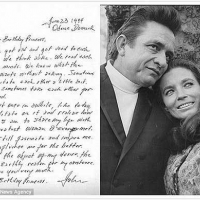 June 23 1994
Odense, Denmark
Birthday Princess,
get old and get used to each
We think alike. We read each
minds. We know what the
wants without asking. Sometimes
irritate each other a little bit.
sometimes take each other for
once in awhile, like today,
on it and realize how
I am to share my life with
greatest woman I ever met.
still fascinate and inspire me.
influence me for the better.
the object of my desire, the
Earthly reason for my existence.
you very much.
Birthday Princess.
John
News Agency